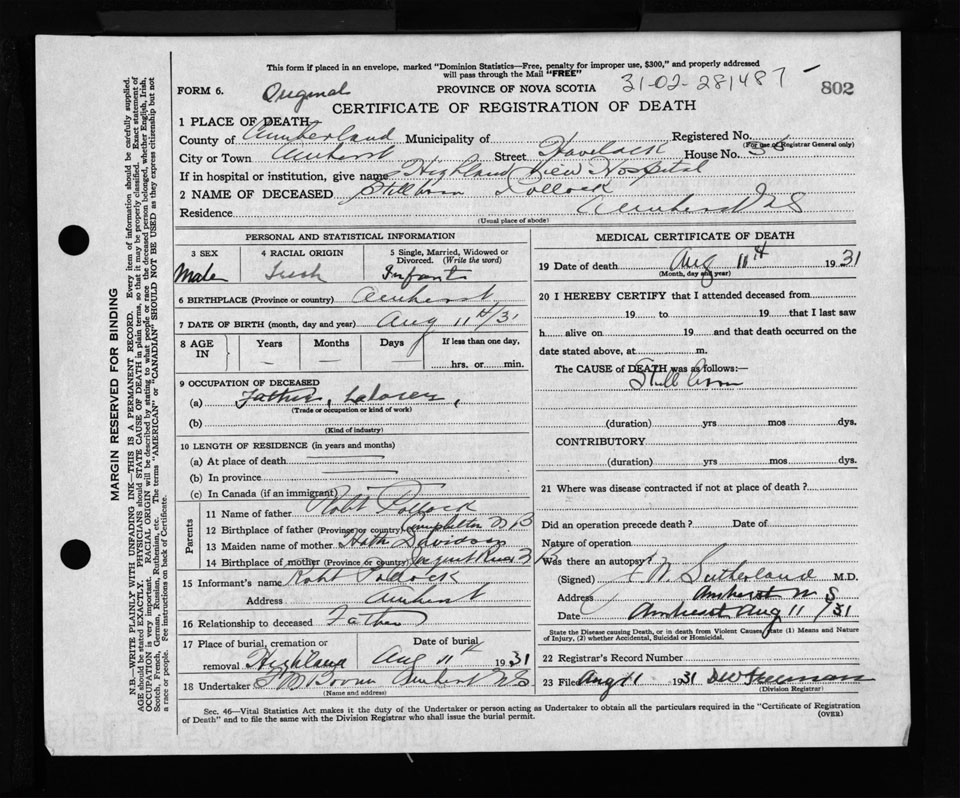 This form if placed in an envelope, marked "Dominion Statistics—Free, penalty for improper use, $300," and properly addressed
will pass through the Mail "FREE"
FORM 6. Original PROVINCE OF NOVA SCOTIA 31-02-281487 802
CERTIFICATE OF REGISTRATION OF DEATH
1 PLACE OF DEATH
County of Cumberland Municipality of Registered No.
(For use of Registrar General only)
City or Town Amherst Street Havelock House No. 36
If in hospital or institution, give name Highland View Hospital
2 NAME OF DECEASED Stillborn Pollock
Residence Amherst NS
(Usual place of abode)
PERSONAL AND STATISTICAL INFORMATION
3 SEX 4 RACIAL ORIGIN 5 Single, Married, Widowed or
Divorced. (Write the word)
Male Irish Infant
6 BIRTHPLACE (Province or country) Amherst
7 DATE OF BIRTH (month, day and year) Aug 11th/31
8 AGE IN Years Months Days If less than one day,
— — hrs. or min.
9 OCCUPATION OF DECEASED
(a) Father, Laborer,
(Trade or occupation or kind of work)
(b)
(Kind of industry)
10 LENGTH OF RESIDENCE (in years and months)
(a) At place of death
(b) In province
(c) In Canada (if an immigrant)
Parents
11 Name of father Robt Pollock
12 Birthplace of father (Province or country) Campbellton N B
13 Maiden name of mother Davidson
14 Birthplace of mother (Province or country)
15 Informant's name Robt Pollock
Address Amherst
16 Relationship to deceased Father
17 Place of burial, cremation or Date of burial
removal Highland Aug 11th 1931
18 Undertaker Amherst NS
(Name and address)
MEDICAL CERTIFICATE OF DEATH
19 Date of death Aug 11th 1931
(Month, day and year)
20 I HEREBY CERTIFY that I attended deceased from
19 to 19 that I last saw
h alive on 19 and that death occurred on the
date stated above, at m.
The CAUSE of DEATH was as follows:—
Still born
(duration) yrs mos dys.
CONTRIBUTORY
(duration) yrs mos dys.
21 Where was disease contracted if not at place of death?
Did an operation precede death? Date of
Nature of operation
Was there an autopsy?
(Signed) Sutherland M.D.
Address Amherst N S
Date Amherst Aug 11/31
State the Disease causing Death, or in death from Violent Causes, state (1) Means and Nature
of Injury, (2) whether Accidental, Suicidal or Homicidal.
22 Registrar's Record Number
23 Filed Aug 11 1931 Freeman
(Division Registrar)
Sec. 46—Vital Statistics Act makes it the duty of the Undertaker or person acting as Undertaker to obtain all the particulars required in the "Certificate of Registration
of Death" and to file the same with the Division Registrar who shall issue the burial permit. (OVER)
MARGIN RESERVED FOR BINDING
N.B.—WRITE PLAINLY WITH UNFADING INK—THIS IS A PERMANENT RECORD. Every item of information should be carefully supplied.
AGE should be stated EXACTLY. PHYSICIANS should STATE CAUSE OF DEATH in plain terms, so that it may be properly classified. Exact statement of
OCCUPATION is very important. RACIAL ORIGIN will be described by stating to what people or race the deceased person belonged, whether English, Irish,
Scotch, French, German, Russian, Ruthenian, etc. The terms "AMERICAN" or "CANADIAN" SHOULD NOT BE USED as they express citizenship but not
a race or people. See instructions on back of Certificate.